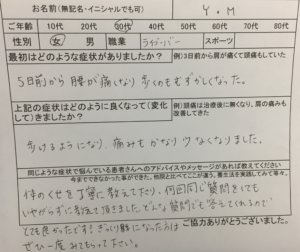 お名前(無記名・イニシャルでも可) Y.M
ご年齢 10代 20代 30代 40代 50代 60代 70代 80代
性別 女 男 職業 ライブ・バー スポーツ
最初はどのような症状がありましたか? 例)3日前から肩が痛くて頭痛もしていた
5日前から腰が痛くなり歩くのもむずかしくなった。
上記の症状はどのように良くなって(変化して)きましたか?
例)頭痛は治療後に無くなり、肩の痛みも改善してきた
歩けるようになり、痛みもかなりツなくなりました。
同じような症状で悩んでいる患者さんへのアドバイスやメッセージがあれば教えてください
体のくせを丁寧に教えて下さり、何回同じ質問をしても
いやがらずに教えて頂きました。どんな質問でも答えてくれるので
とても良かったです!ぎっくり腰になった方は
ぜひ一度みてもらって下さい。
ご協力ありがとうございました。